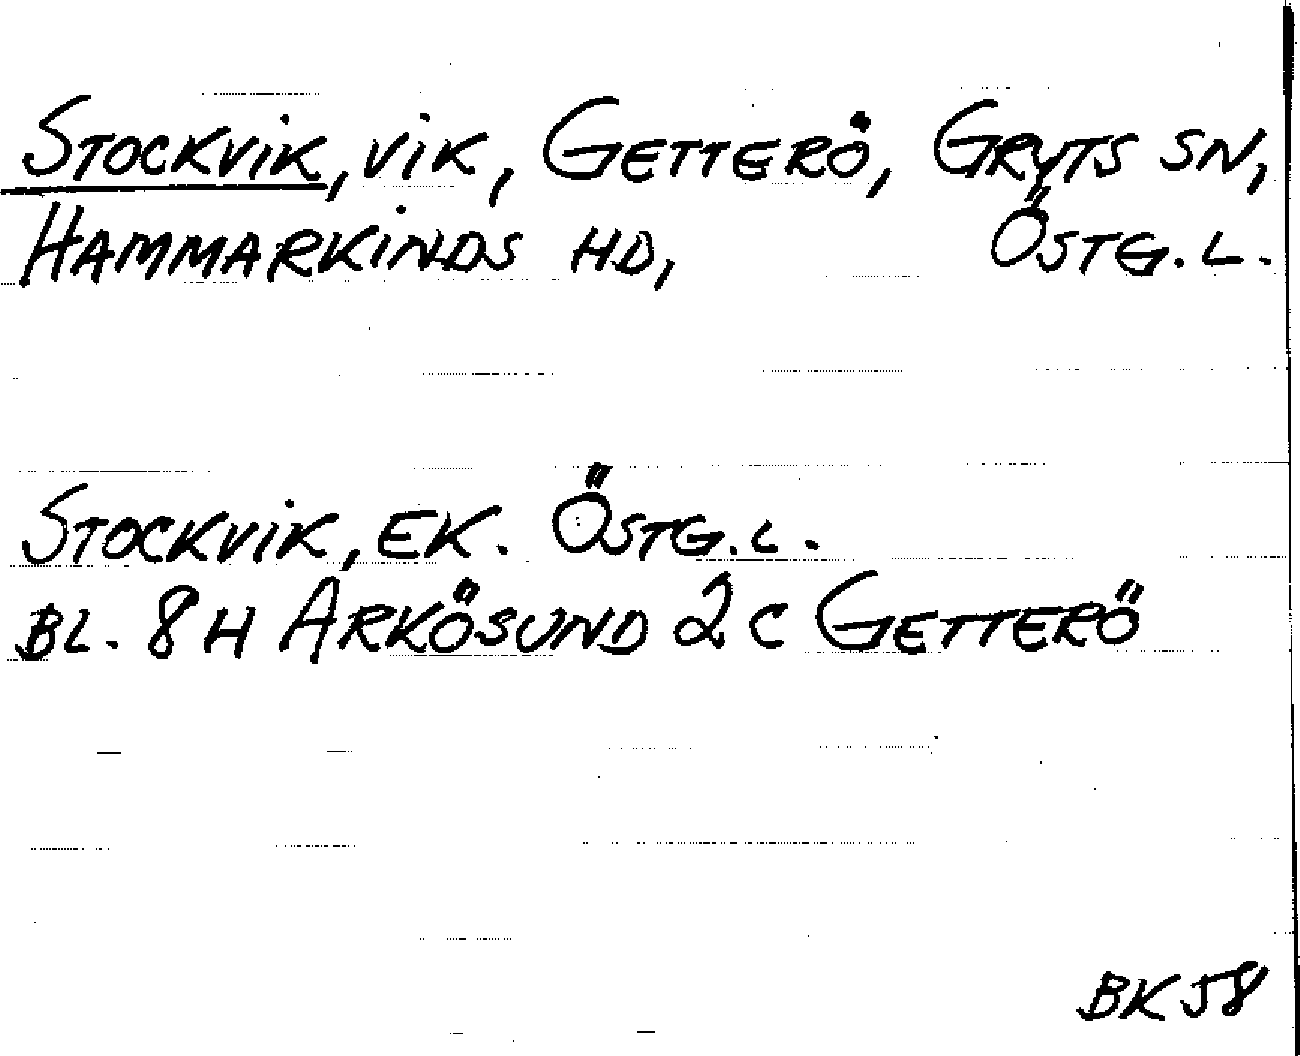 STOCKVIK, VIK, GETTERÖ, GRYTS SN,
HAMMARKINDS HD, ÖSTG. L.
STOCKVIK, EK. ÖSTG. L.
BL. 8 H ARKÖSUND 2 C GETTERÖ
BK 58